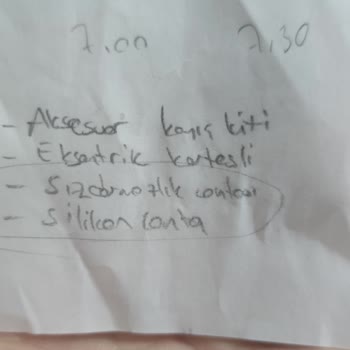 7.00 7,30
- Aksesuar kayış kiti
- Eksantrik kartesli
- Sızdırmazlık contası
- Silikon conta